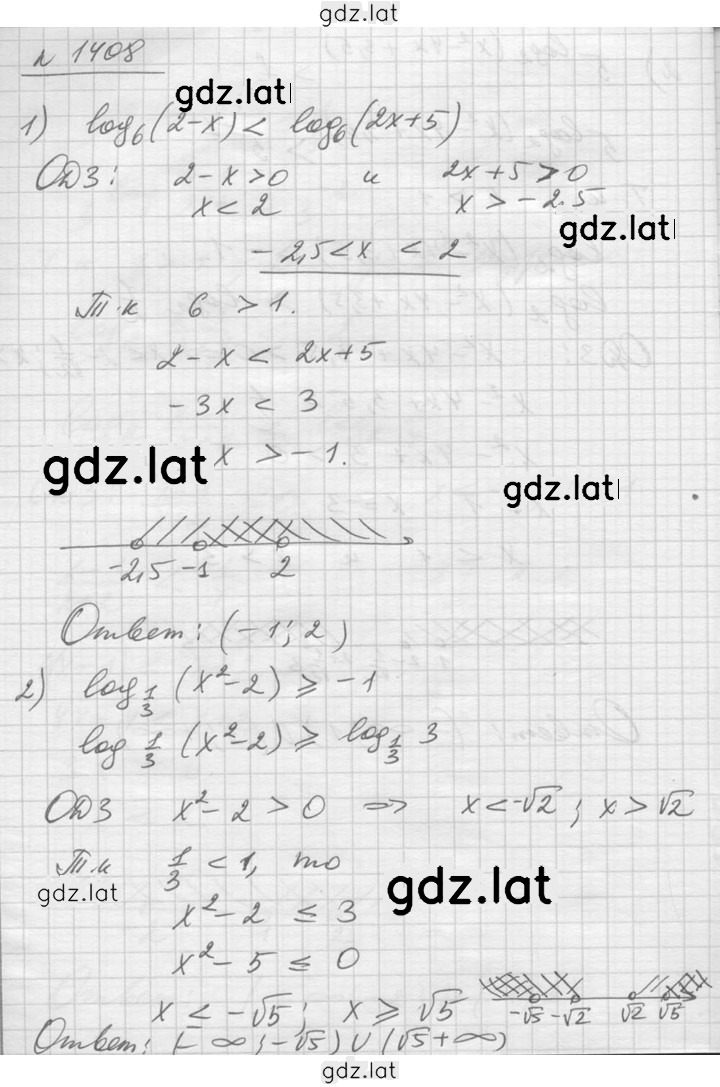 gdz.lat
№ 1408
gdz.lat
1) log₆(2-x) < log₆(2x+5)
ОДЗ: 2-x>0 и 2x+5>0
x<2 x>-2.5
gdz.lat
-2,5<x < 2
Т.к 6 > 1.
2-x < 2x+5
-3x < 3
gdz.lat x > -1.
gdz.lat
-2,5 -1 2
Ответ: (-1; 2)
2) log_{1/3} (x²-2) ⩾ -1
log_{1/3} (x²-2) ⩾ log_{1/3} 3
ОДЗ x²-2>0 => x<-√2; x>√2
Т.к 1/3 < 1, то
gdz.lat
gdz.lat
x²-2 ≤ 3
x²-5 ≤ 0
x ≤ -√5; x ⩾ √5
-√5 -√2 √2 √5
Ответ: (-∞;-√5)∪(√5+∞)
gdz.lat